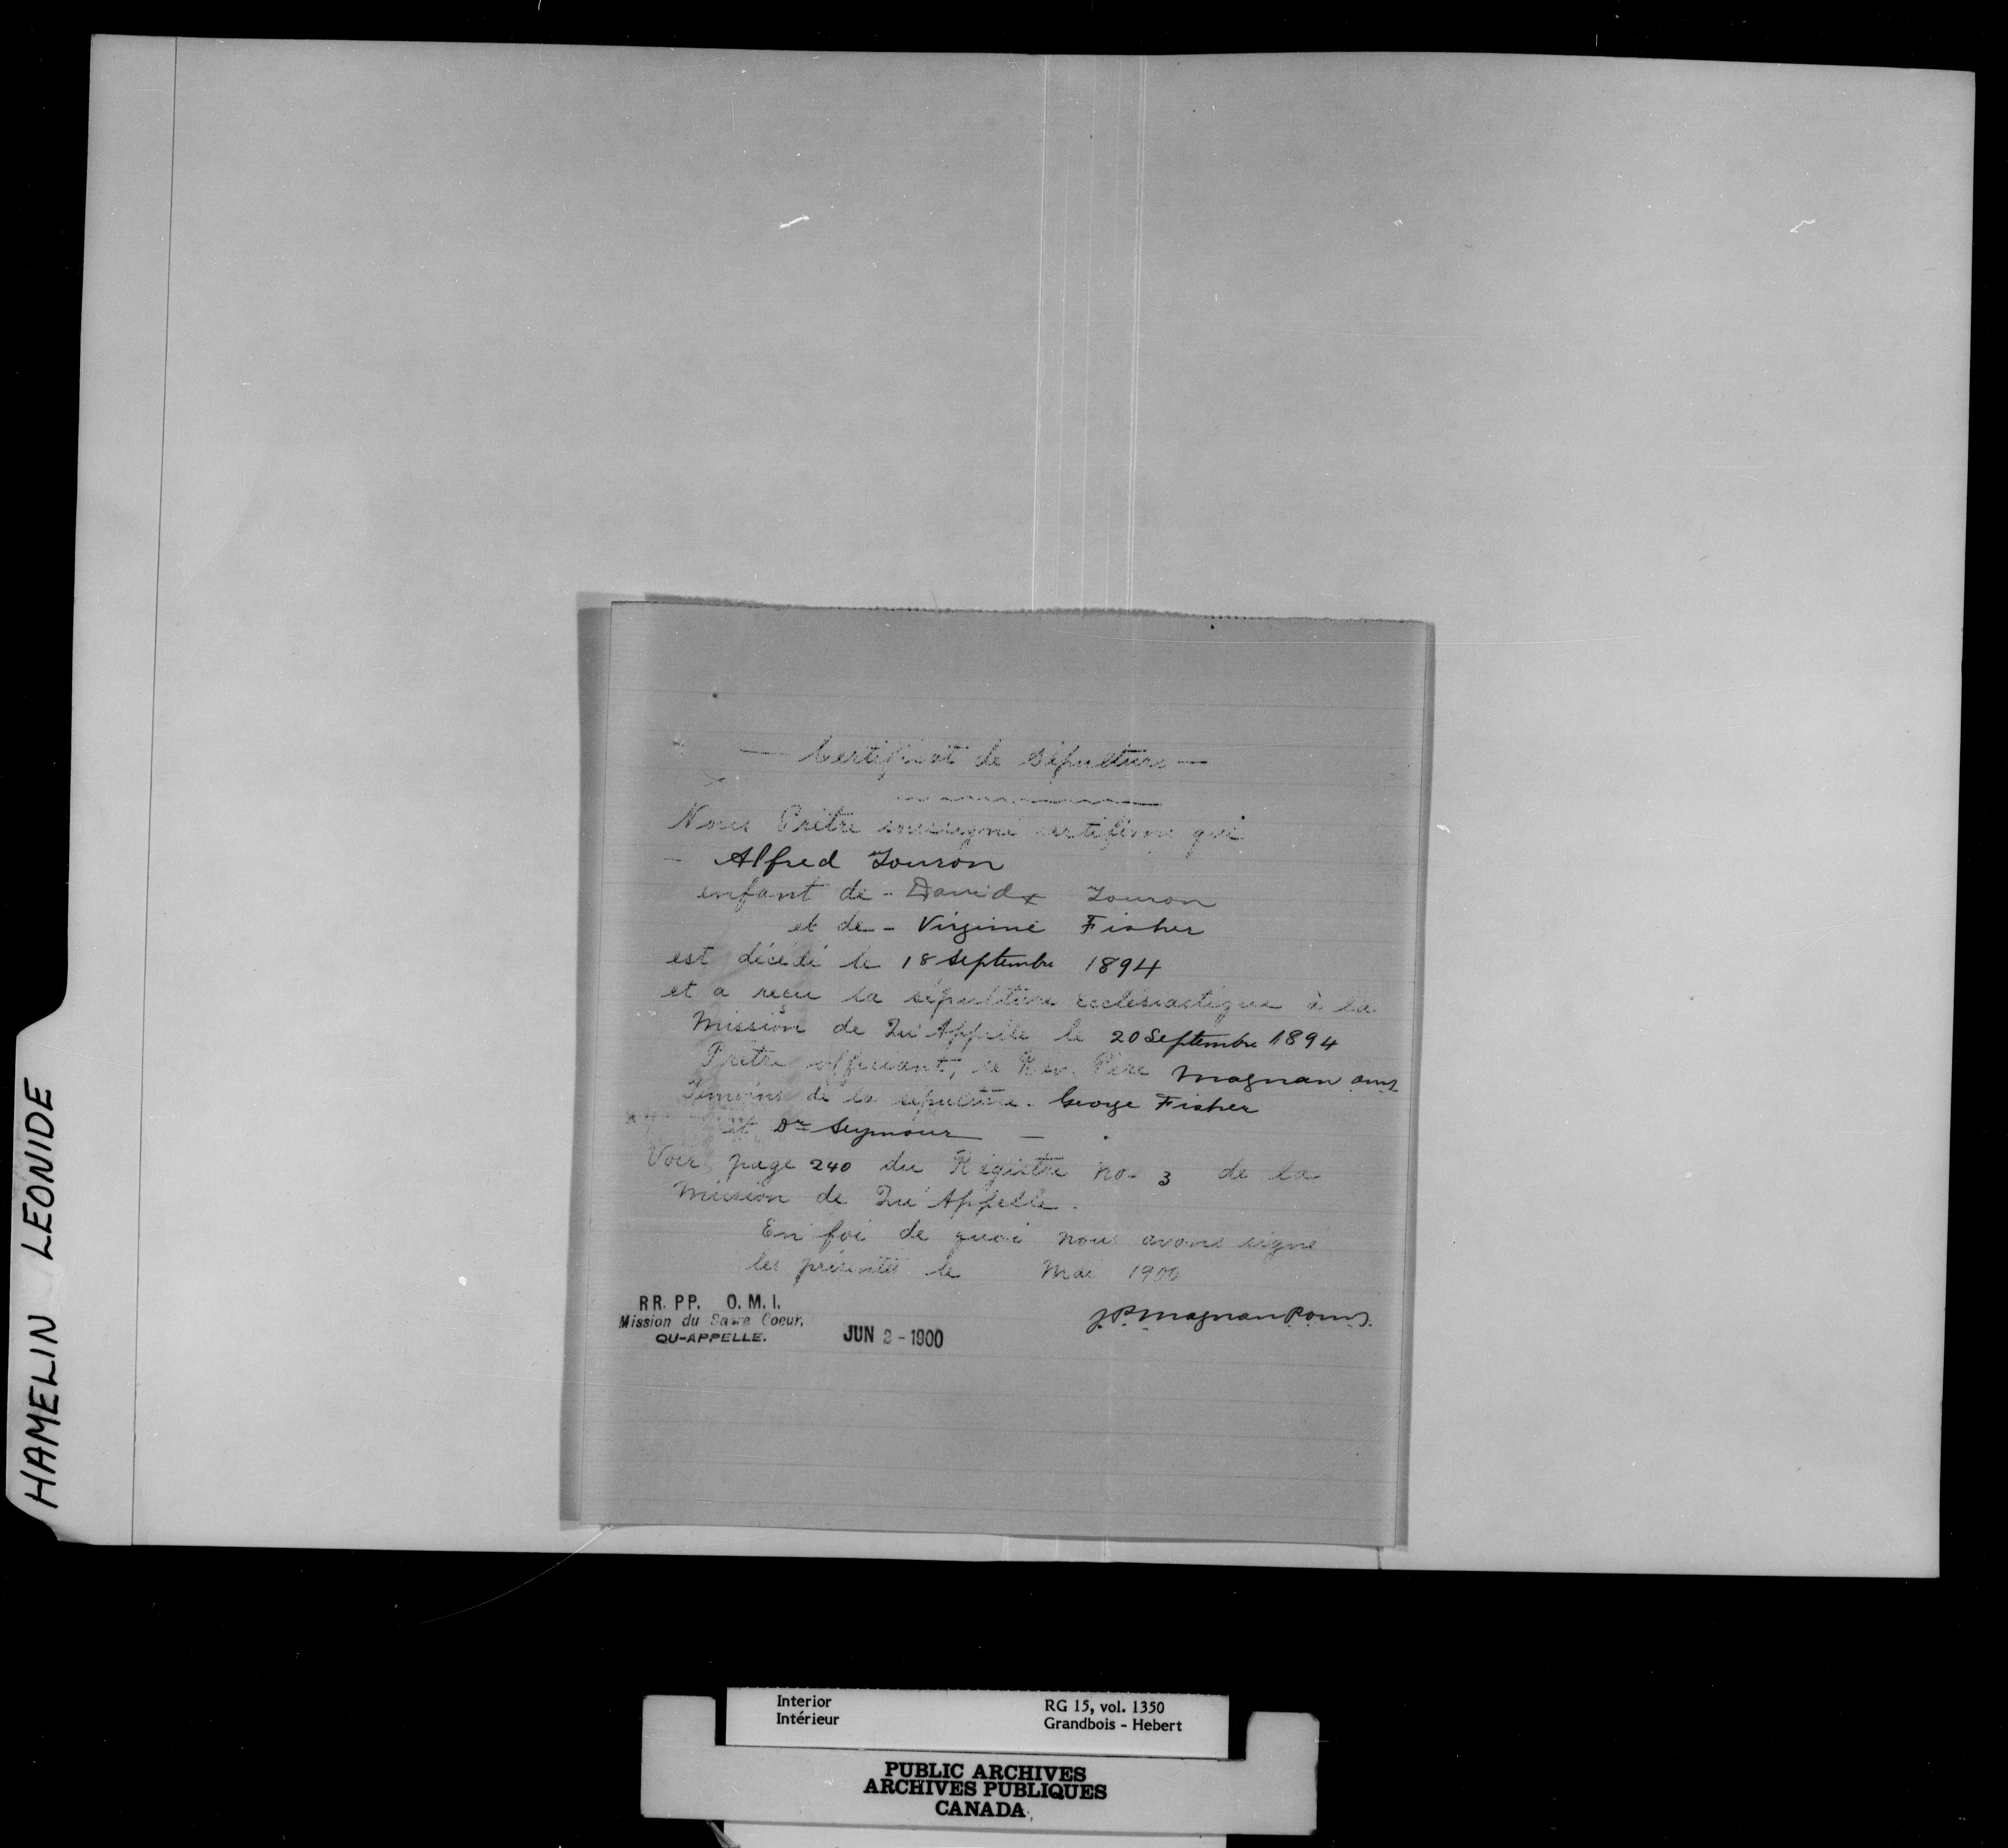 HAMELIN LEONIDE
— Certificat de Sépulture —
Nous Prêtre soussigné certifions que
- Alfred Touron
enfant de - David Touron
et de - Virginie Fisher
est décédé le 18 Septembre 1894
et a reçu la sépulture ecclésiastique à la
Mission de Qu'Appelle le 20 Septembre 1894
Prêtre officiant, le Rev. Père Magnan omi
Témoins de la sépulture. George Fisher
et Dr Seymour —
Voir page 240 du Régistre no. 3 de la
Mission de Qu'Appelle.
En foi de quoi nous avons signé
les présentes le Mai 1900
J.P. Magnan P. o.m.i.
RR. PP. O. M. I.
Mission du Sacre Coeur,
QU-APPELLE.
JUN 2 - 1900
Interior
Intérieur
RG 15, vol. 1350
Grandbois - Hebert
PUBLIC ARCHIVES
ARCHIVES PUBLIQUES
CANADA